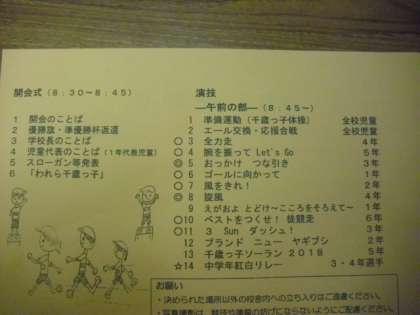 開会式(8:30~8:45)
1 開会のことば
2 優勝旗・準優勝杯返還
3 学校長のことば
4 児童代表のことば(1年代表児童)
5 スローガン等発表
6 「われら千歳っ子」
演技
―午前の部―(8:45~)
1 準備運動(千歳っ子体操) 全校児童
2 エール交換・応援合戦 全校児童
○3 全力走 4年
○4 腕を振って Let's Go 5年
◎5 おっかけ つな引き 3年
○6 ゴールに向かって 1年
○7 風をきれ! 2年
◎8 旋風 4年
9 えがおよ とどけ~こころをそろえて~ 1年
○10 ベストをつくせ! 徒競走 6年
○11 3 Sun ダッシュ! 3年
12 ブランド ニュー ヤギブシ 2年
13 千歳っ子ソーラン 2018 5年
☆14 中学年紅白リレー 3・4年選手
お願い
・決められた場所以外の校舎内への立ち入りはご遠慮ください。